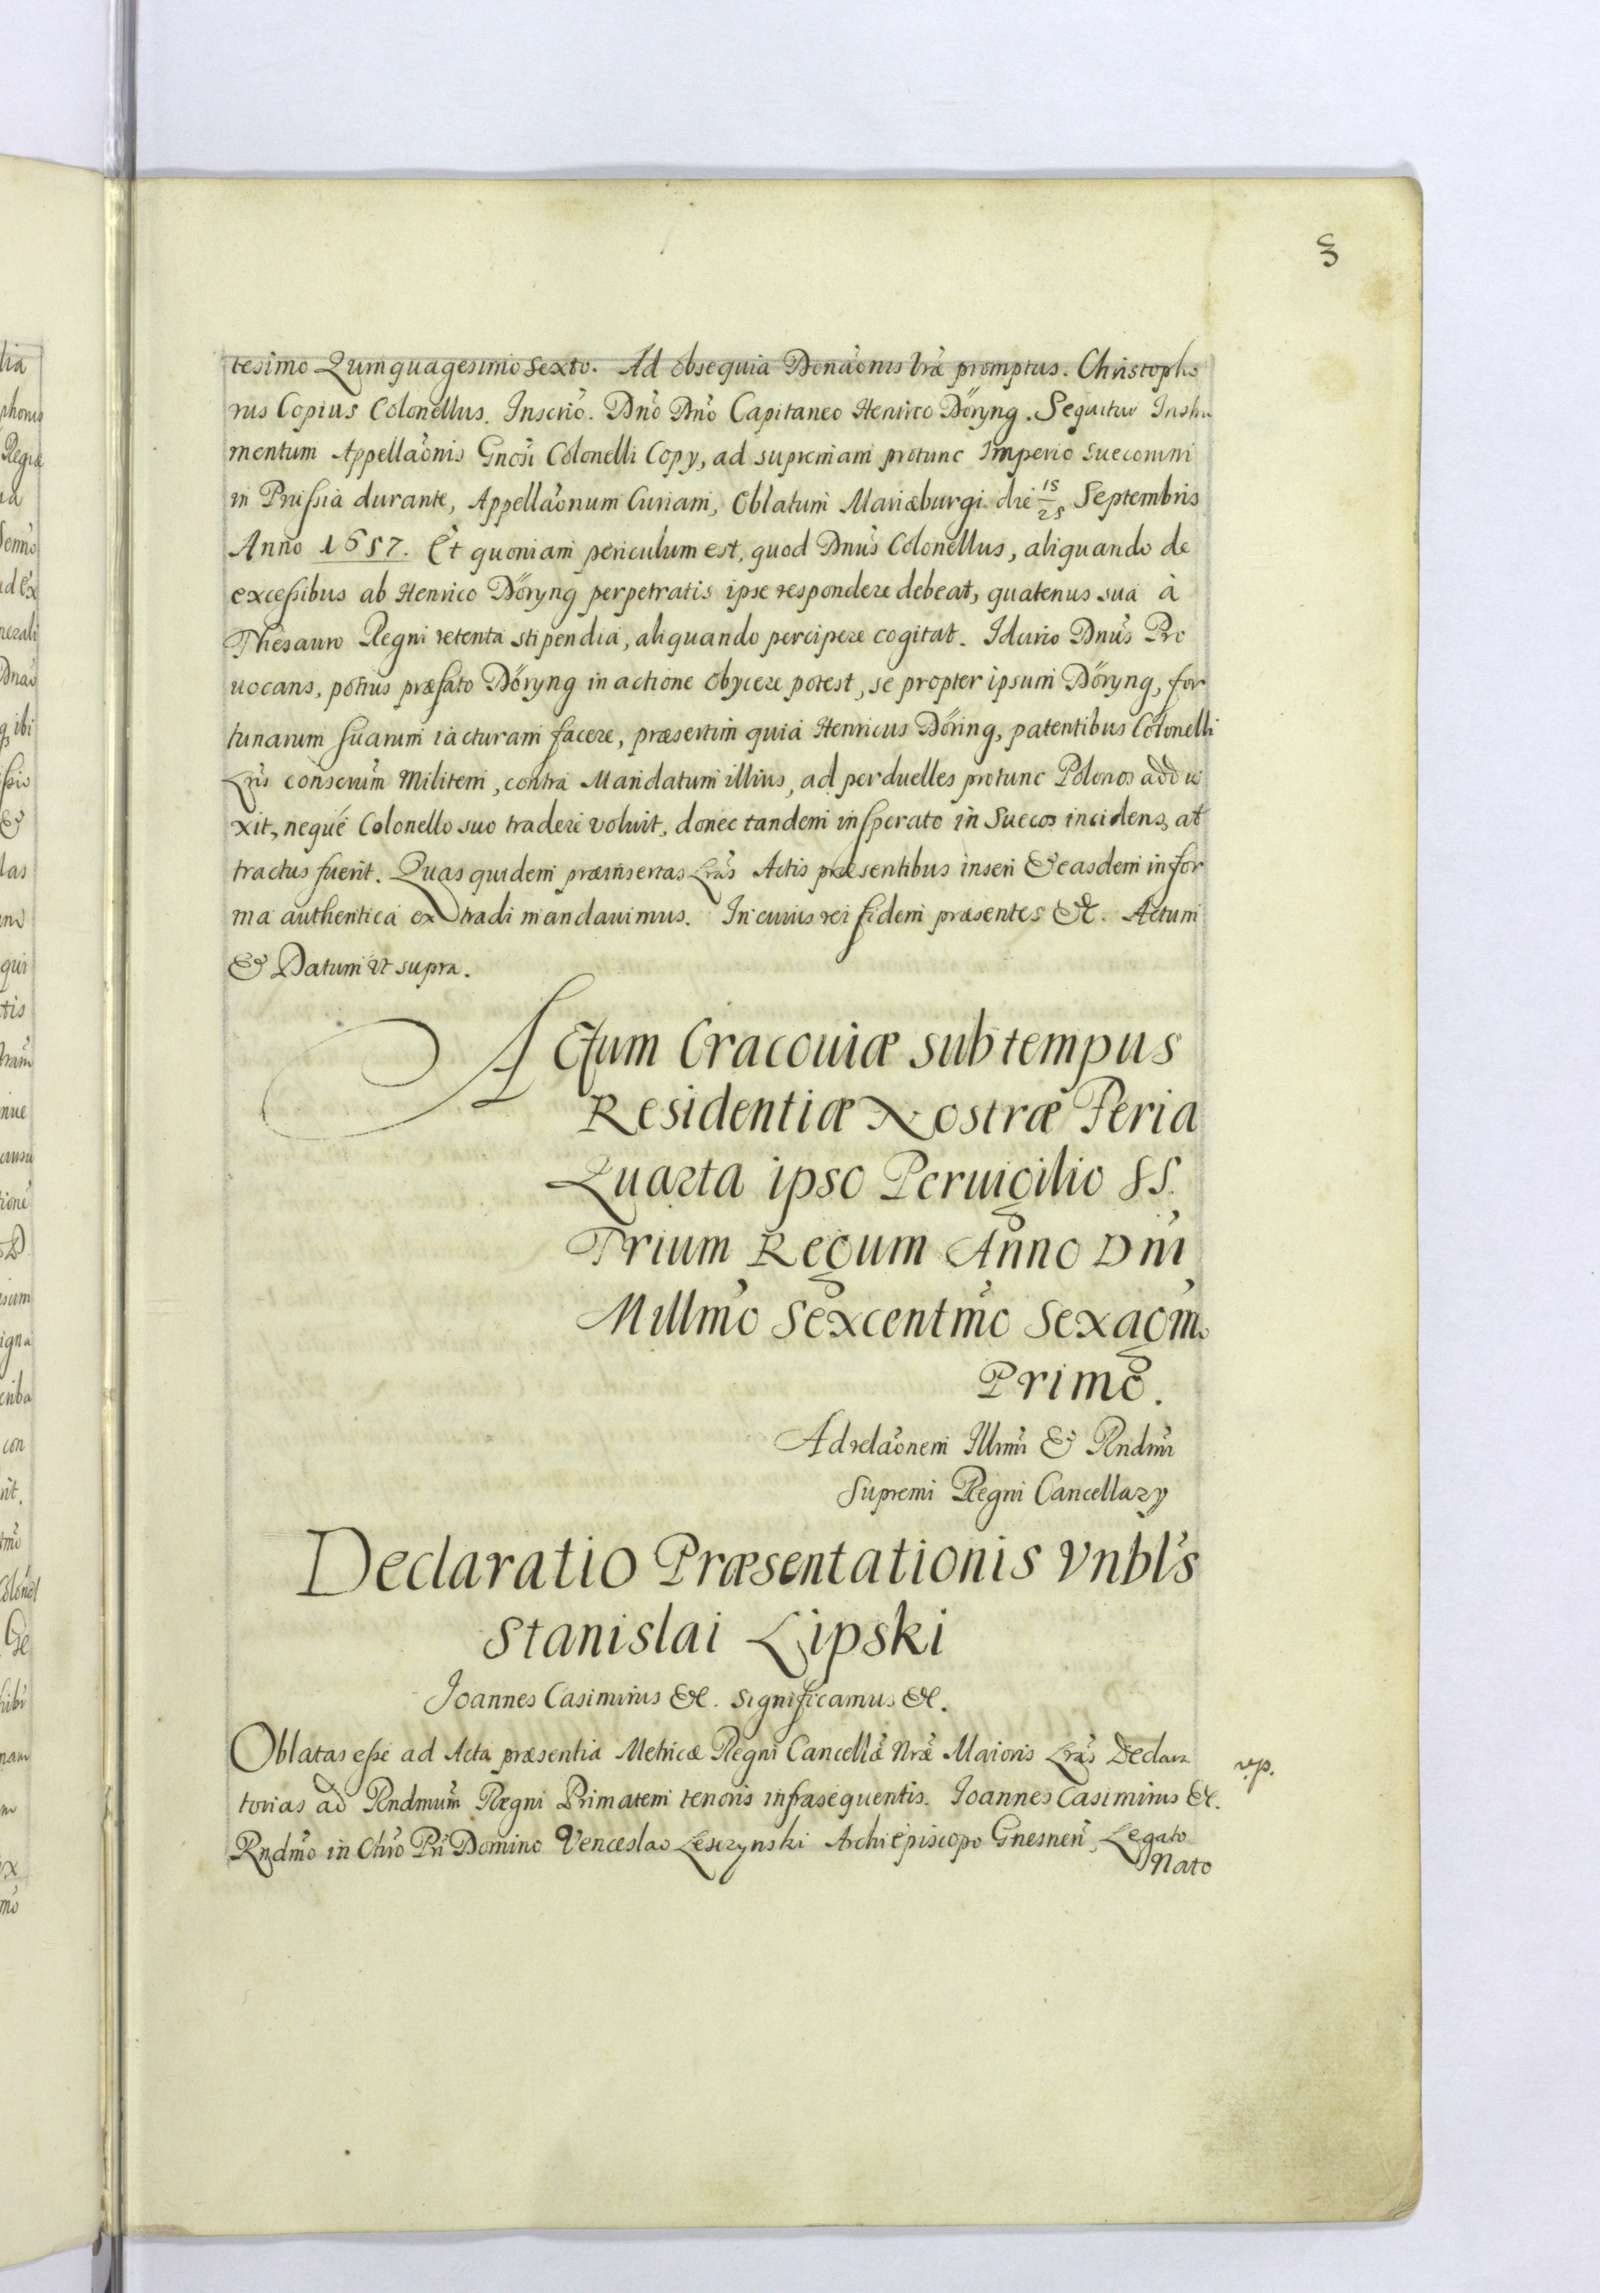 3
tesimo Quinquagesimo sexto. Ad obsequia Donãonis Vrã promptus. Christopho
rus Copius Colonellus. Inscriõ. Dnõ Dnõ Capitaneo Henrico Dőryng. Sequitur Instru
mentum Appellaõnis Gnõsi Colonelli Copy, ad supremam protunc Imperio Suecorum
in Prussia durante, Appellaõnum Curiam, Oblatum Mariæburgi die 15/25 Septembris
Anno 1657. Et quoniam periculum est, quod Dnũs Colonellus, aliquando de
excessibus ab Henrico Dőryng perpetratis ipse respondere debeat, quatenus sua à
Thesauro Regni retenta stipendia, aliquando percipere cogitat. Idcirio Dnũs Pro
uocans, potius præfato Dőryng in actione obycere potest, se propter ipsum Dőryng, for
tunarum suarum iacturam facere, præsertim quia Henricus Dőring, patentibus Colonelli
Lrĩs conscrũm Militem, contra Mandatum illius, ad perduelles protunc Polonos addu
xit, neque Colonello suo tradere voluit, donec tandem insperato in Suecos incidens, at
tractus fuerit. Quas quidem præinsertas Lrãs Actis præsentibus inseri & easdem in for
ma authentica extradi mandauimus. In cuius rei fidem præsentes &c. Actum
& Datum vt supra.
Actum Cracouiæ sub tempus
Residentiæ Nostræ Feria
Quarta ipso Peruigilio SS.
Trium Regum Anno Dni
Millmõ Sexcentmõ Sexagmo
Primo.
Ad relaõnem Illmi & Rndmi
Supremi Regni Cancellary
Declaratio Præsentationis Vnbl's
Stanislai Lipski
Joannes Casimirus &c. Significamus &c.
Oblatas esse ad Acta præsentia Metricæ Regni Cancellæ Nræ Maioris Lrãs Declara
torias ad Rndmum Regni Primatem tenoris infrasequentis. Joannes Casimirus &c.
Rndmõ in Chrõ Pri Domino Venceslao Leszynski Archiepiscopo Gnesnen, Legato
Nato